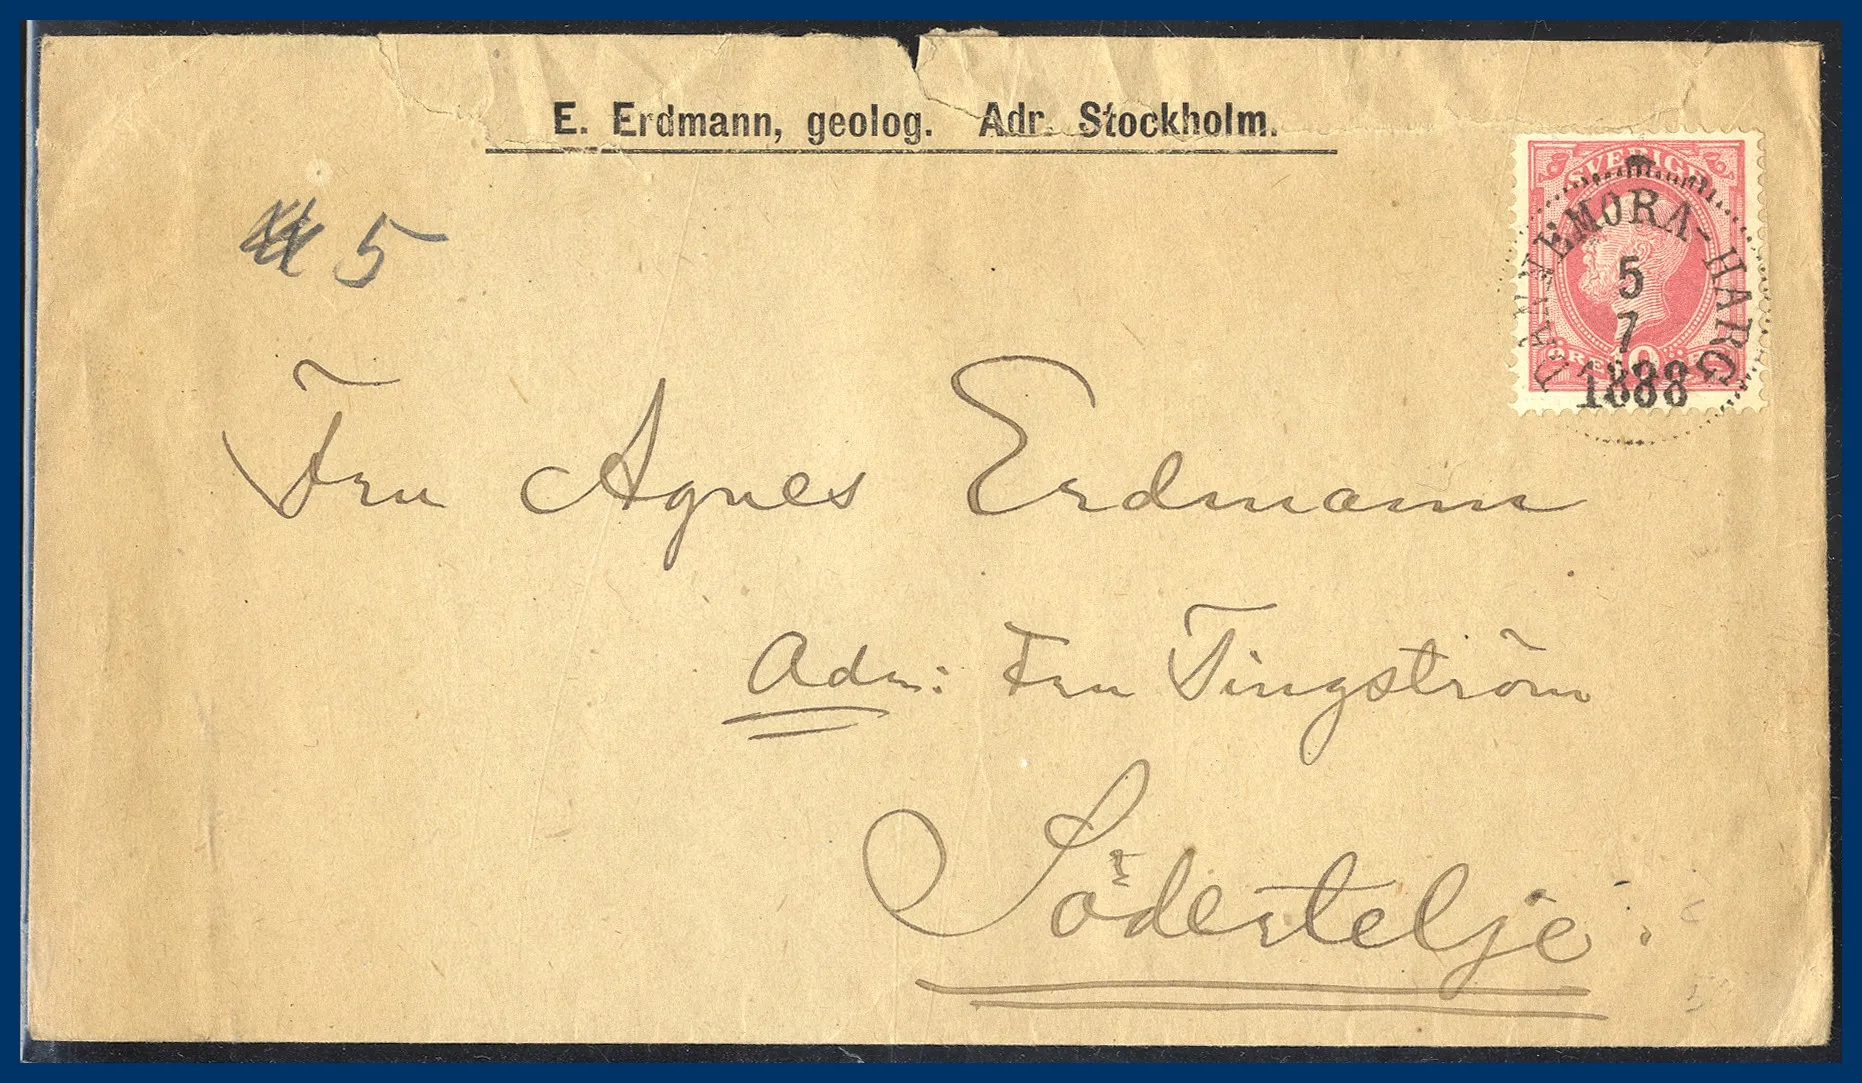 E. Erdmann, geolog. Adr. Stockholm.
5
SVERIGE
DANNEMORA-HARG
5
7
1888
Fru Agnes Erdmann
Adr: Fru Tingström
Södertelje